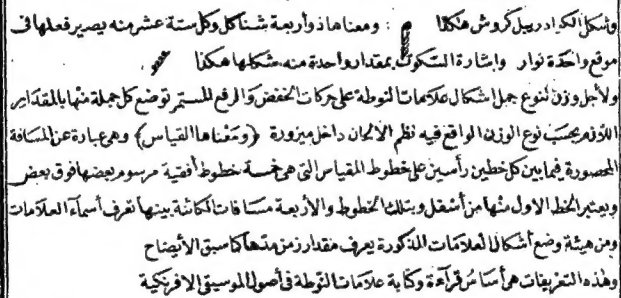 وشكل الكوادرپيل كروش هكذا : ومعناها ذو أربعة شناكل وكل ستة عشر منه يصير فعلها فى
موقع واحدة نوار وإشارة السكوت بمقدار واحدة منه شكلها هكذا
ولأجل وزن تنوع جمل اشكال علامات النوطة على حركات الخفض والرفع المستمر توضع كل جملة منها بالمقدار
اللازم بحسب نوع الوزن الواقع فيه نظم الألحان داخل ميزورة (ومعناها القياس) وهى عبارة عن المسافة
المحصورة فيما بين كل خطين رأسيين على خطوط المقياس التى هى خمسة خطوط أفقية مرسوم بعضها فوق بعض
ويعتبر الخط الاول منها من أسفل وبتلك الخطوط والأربعة مسافات الكائنة بينها تعرف أسماء العلامات
ومن هيئة وضع أشكال العلامات المذكورة يعرف مقدار زمن مدها كما سبق الأيضاح
وهذه التعريفات هى أساس قرآءة وكتابة علامات النوطة فى أصول الموسيقى الافرنكية